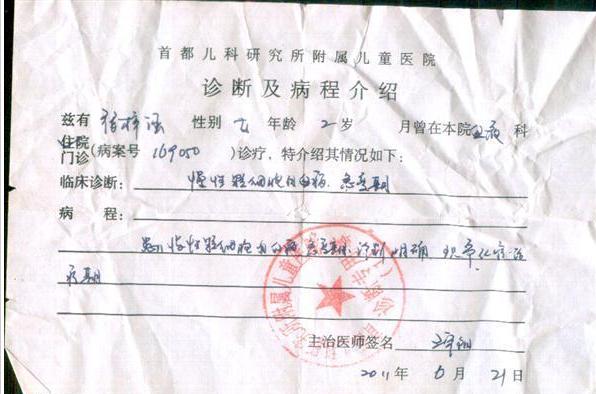 首都儿科研究所附属儿童医院
诊断及病程介绍
兹有 性别 女 年龄 2岁 月曾在本院血液科
住院
门诊(病案号 169050)诊疗，特介绍其情况如下：
临床诊断：慢性粒细胞白血病．急变期
病 程：
患儿慢性粒细胞白血病 急变期，诊断明确 现需化疗治
疗期
主治医师签名
2011年 6月21日